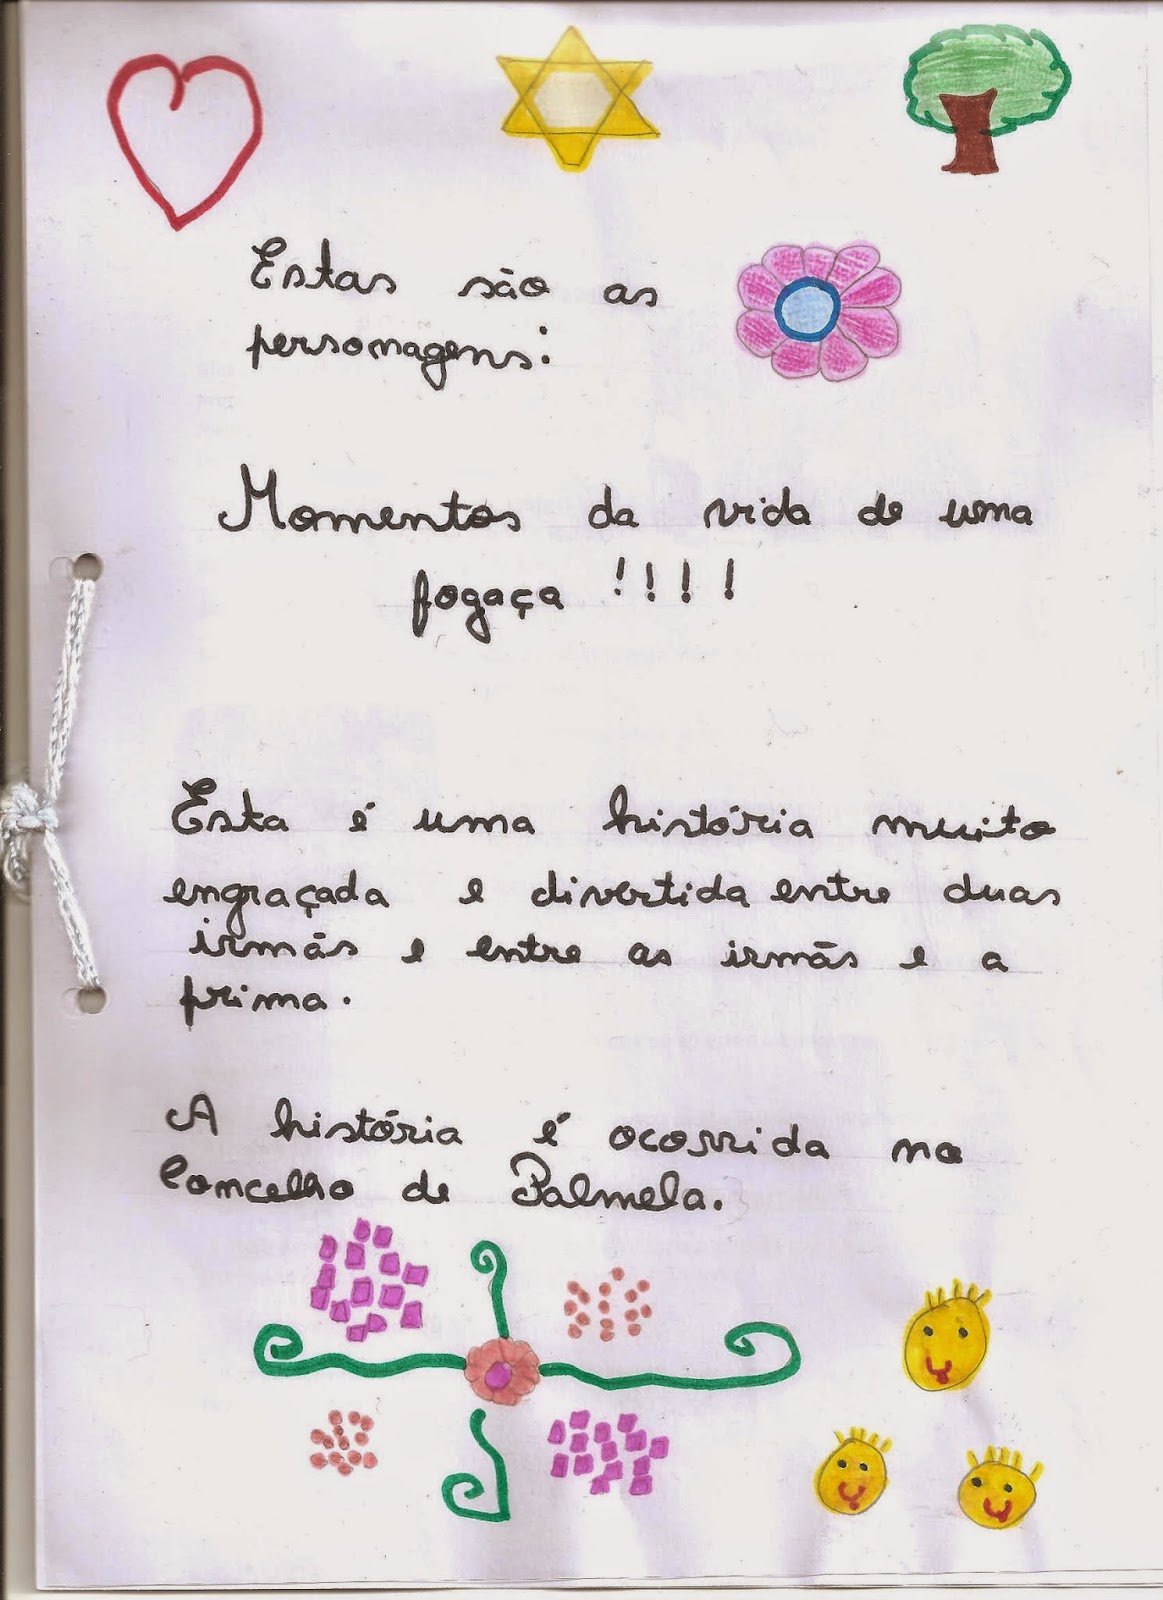 Estas são as
personagens:
Momentos da vida de uma
fogaça !!!!
Esta é uma história muito
engraçada e divertida entre duas
irmãs e entre as irmãs e a
prima.
A história é ocorrida no
Concelho de Palmela.